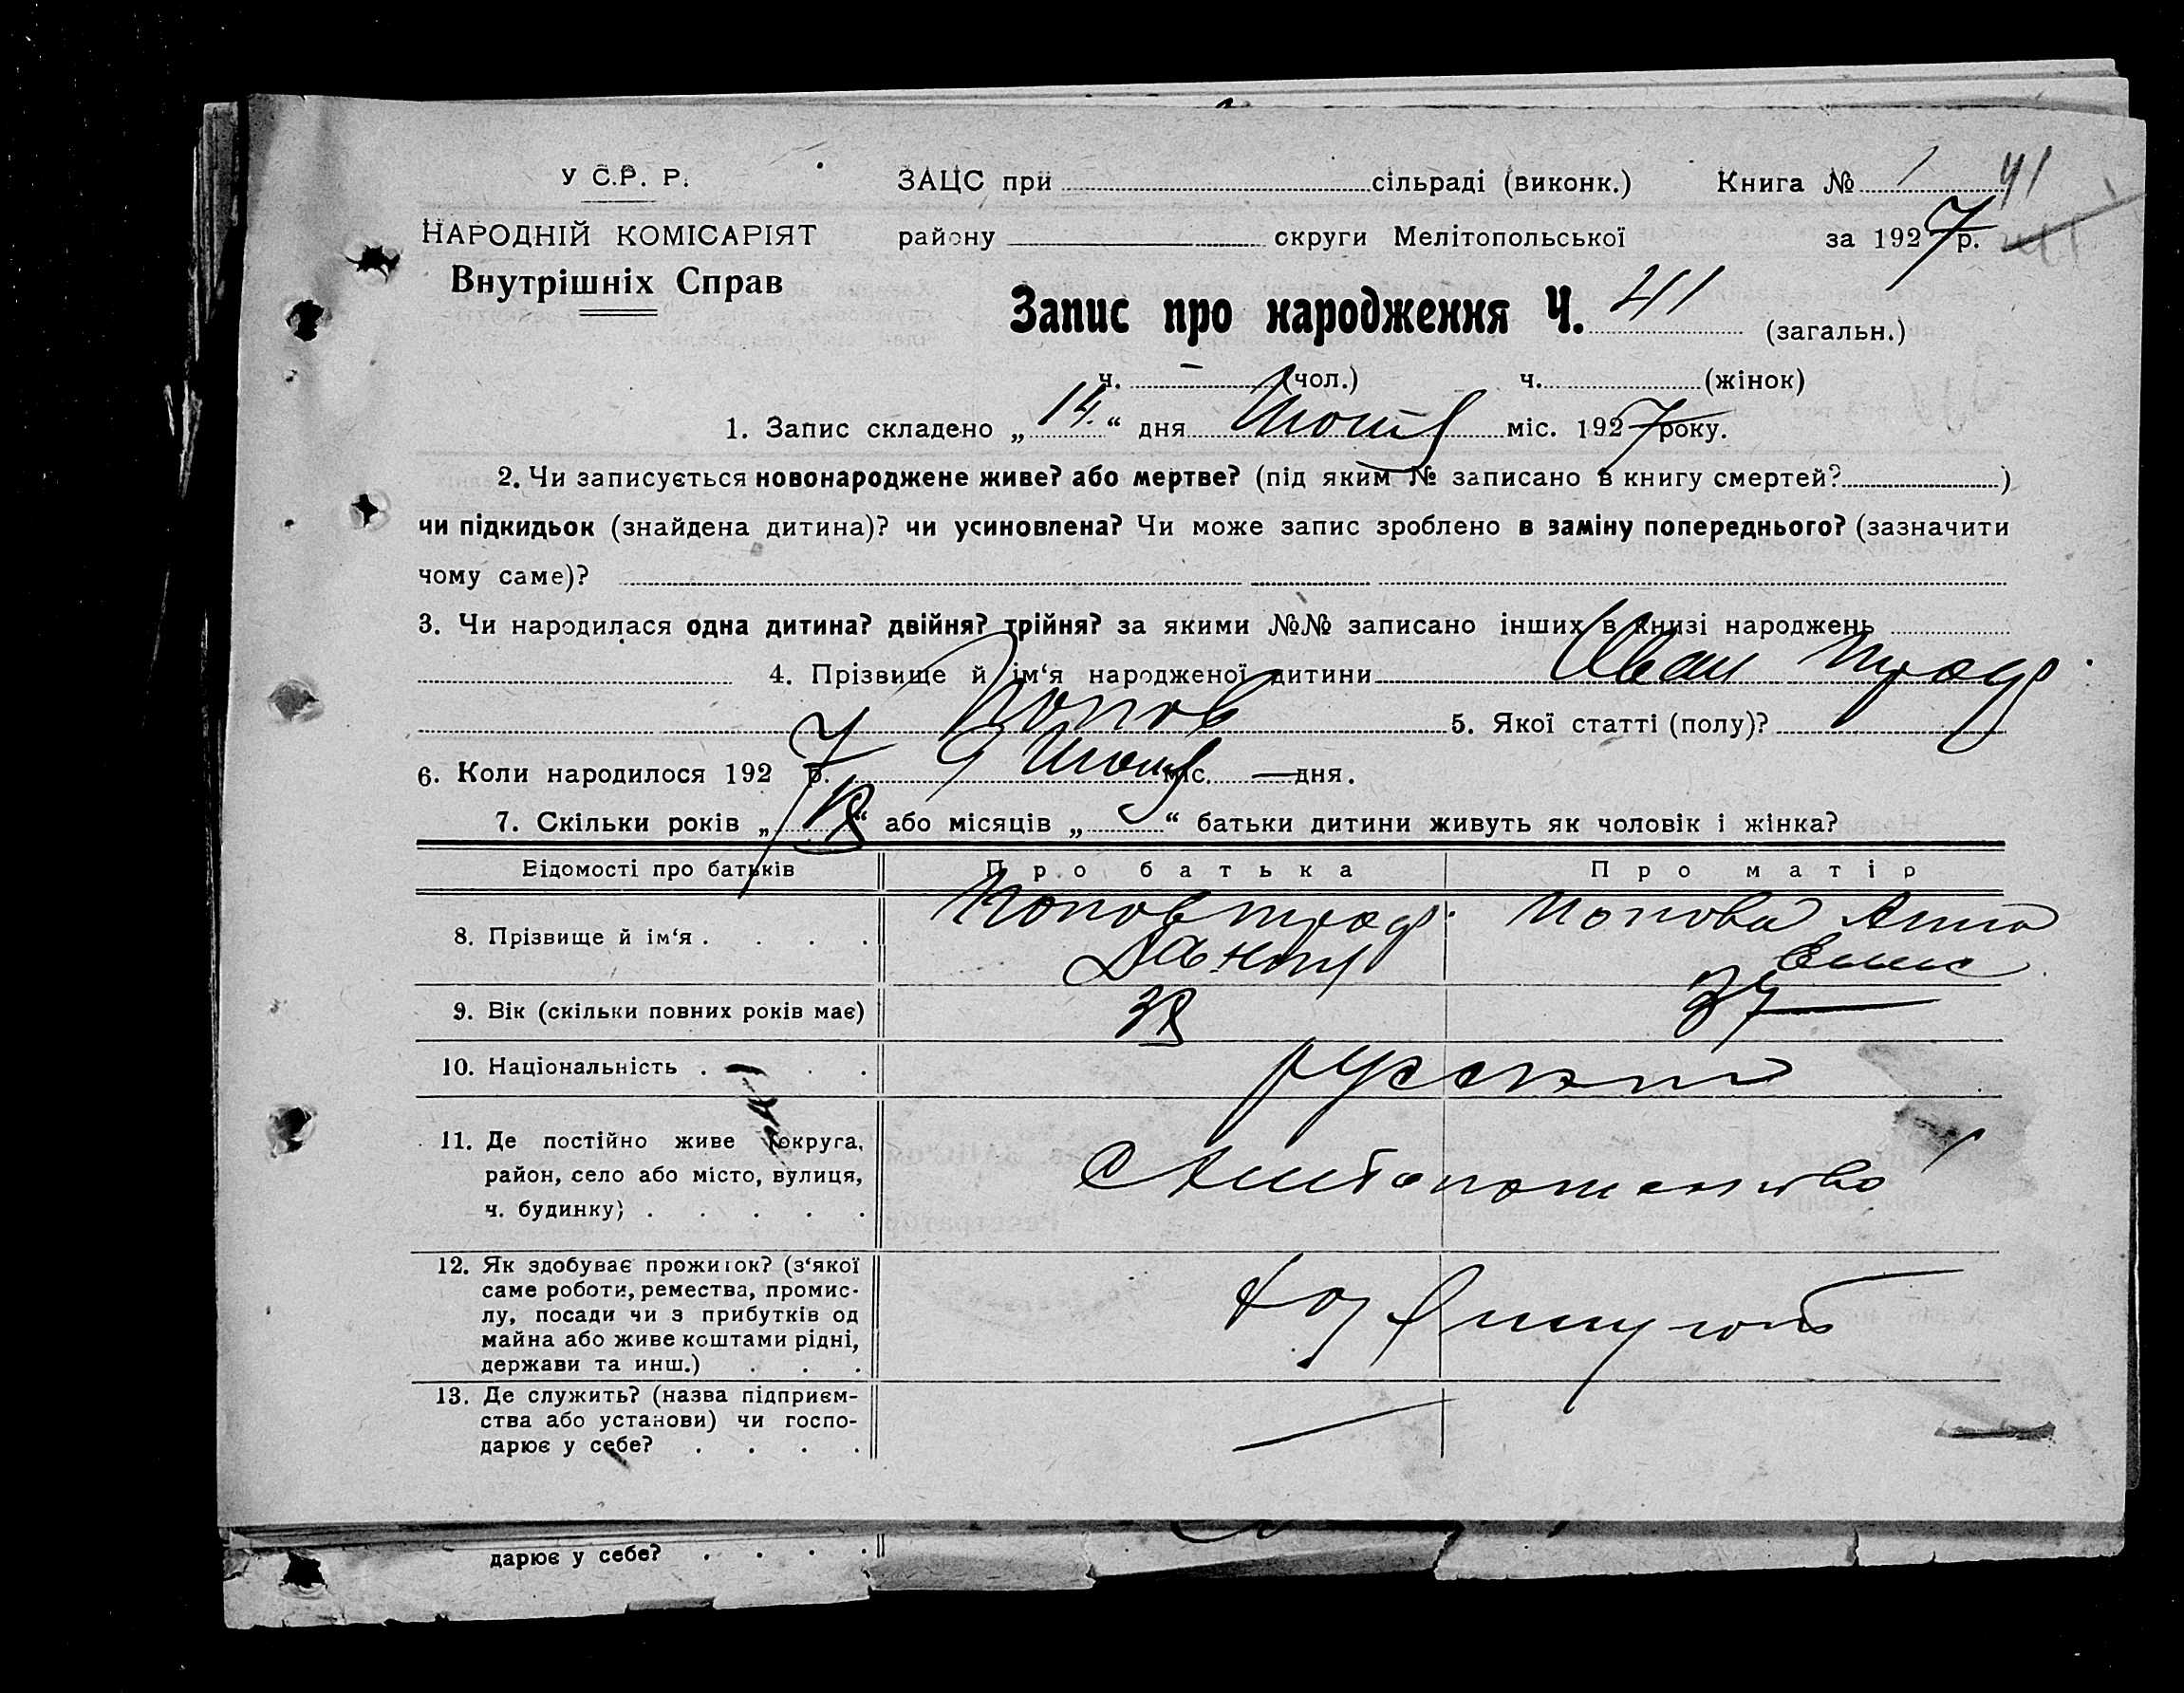 У С.Р. Р.
НАРОДНІЙ КОМІСАРІЯТ
Внутрішніх Справ
ЗАЦС при сільраді (виконк.) Книга № 1 41
району округи Мелітопольської за 1927 р.
Запис про народження Ч. 41 (загальн.)
ч. — (чол.) ч. (жінок)
1. Запис складено „ 14 “ дня міс. 1927 року.
2. Чи записується новонароджене живе? або мертве? (під яким № записано в книгу смертей? )
чи підкидьок (знайдена дитина)? чи усиновлена? Чи може запис зроблено в заміну попереднього? (зазначити
чому саме)?
3. Чи народилася одна дитина? двійня? трійня? за якими №№ записано інших в книзі народжень
4. Прізвище й ім‘я народженої дитини Иван Троф.
Попов 5. Якої статті (полу)?
6. Коли народилося 1927 р. 9 міс. — дня.
7. Скільки років „ 18 “ або місяців „ “ батьки дитини живуть як чоловік і жінка?
Відомості про батьків Про батька Про матір
8. Прізвище й ім‘я . . . . Попов Троф. Попова Анна
9. Вік (скільки повних років має) 38 37
10. Національність . . . . русский
11. Де постійно живе (округа,
район, село або місто, вулиця,
ч. будинку) . . . . .
12. Як здобуває прожиток? (з‘якої
саме роботи, ремества, промис-
лу, посади чи з прибутків од
майна або живе коштами рідні,
держави та инш.) . . .
13. Де служить? (назва підприєм-
ства або установи) чи госпо-
дарює у себе? . . . .
дарює у себе? . . . .